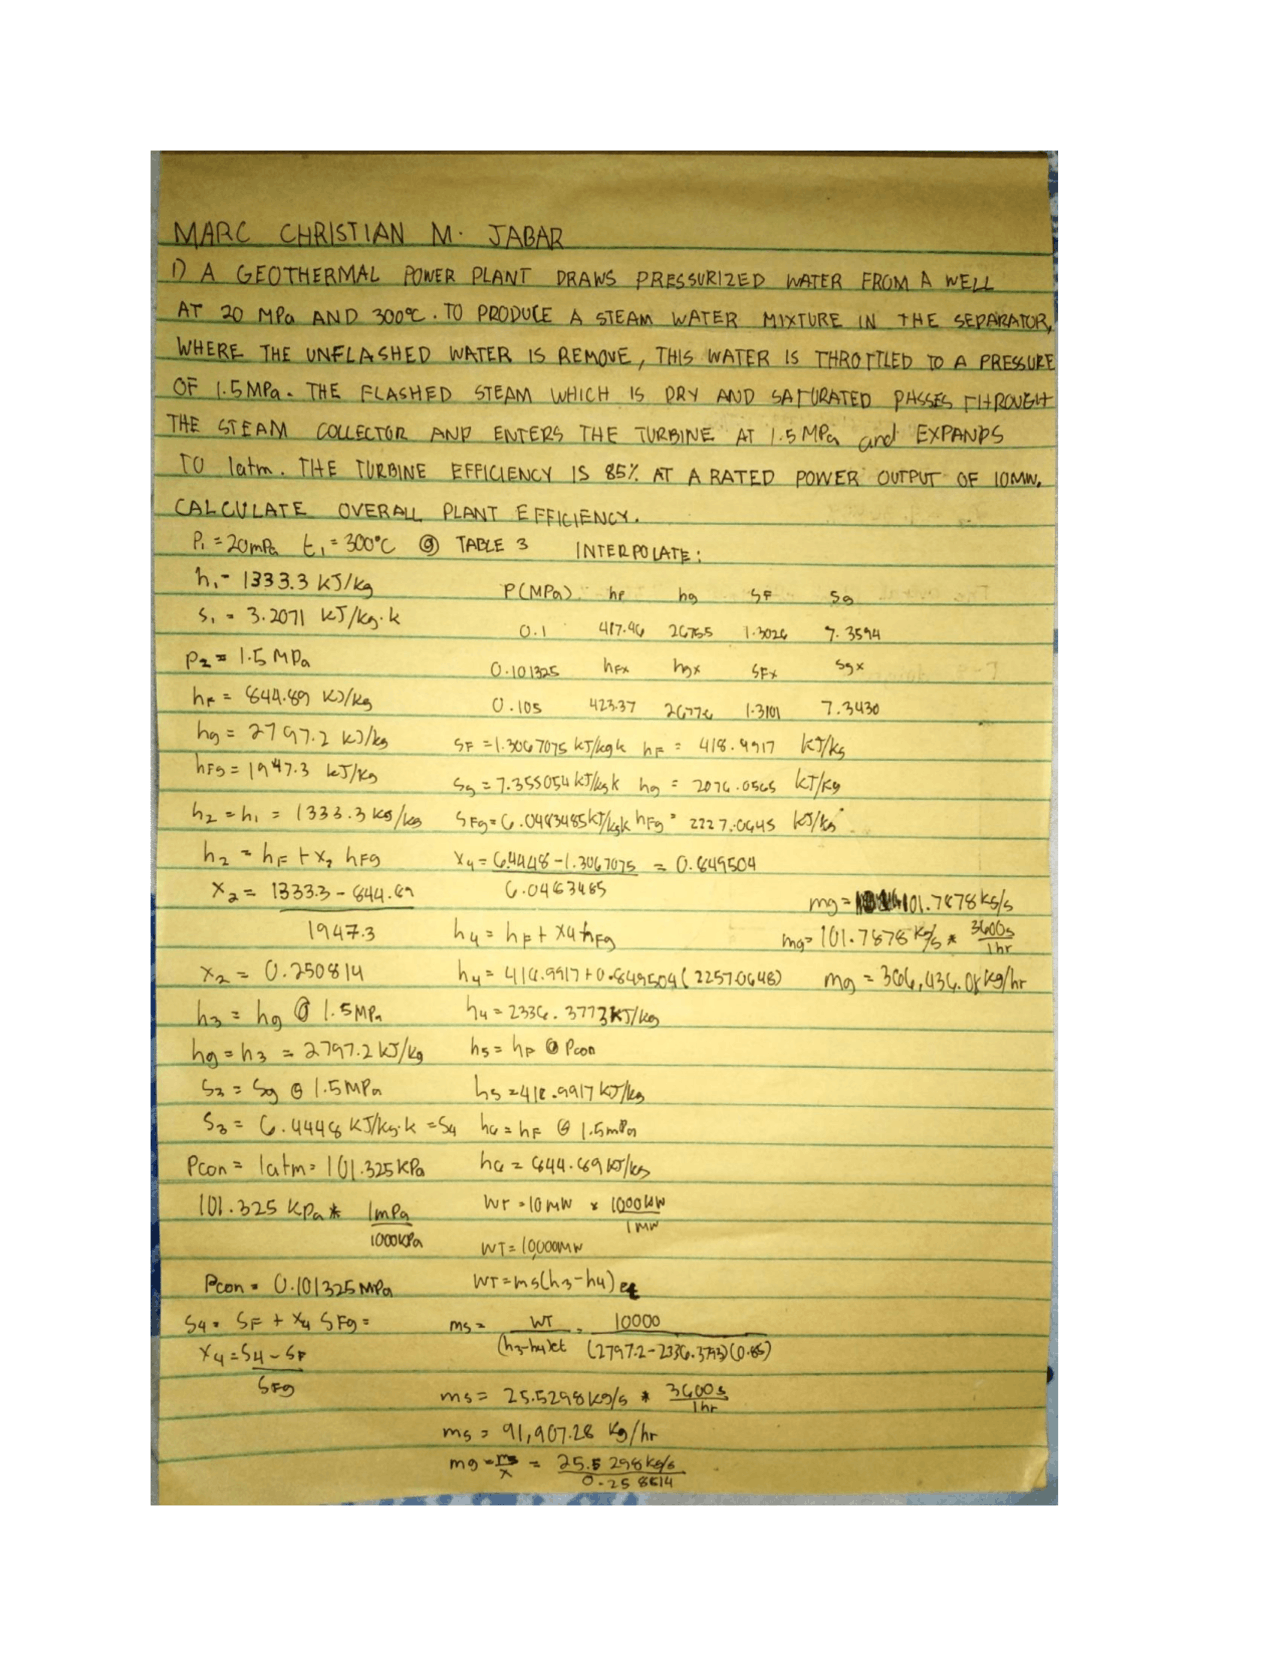 MARC CHRISTIAN M. JABAR
1) A GEOTHERMAL POWER PLANT DRAWS PRESSURIZED WATER FROM A WELL
AT 20 MPa AND 300°C. TO PRODUCE A STEAM WATER MIXTURE IN THE SEPARATOR,
WHERE THE UNFLASHED WATER IS REMOVE, THIS WATER IS THROTTLED TO A PRESSURE
OF 1.5MPa. THE FLASHED STEAM WHICH IS DRY AND SATURATED PASSES THROUGH
THE STEAM COLLECTOR AND ENTERS THE TURBINE AT 1.5MPa and EXPANDS
TO 1atm. THE TURBINE EFFICIENCY IS 85% AT A RATED POWER OUTPUT OF 10MW.
CALCULATE OVERALL PLANT EFFICIENCY.
P1 = 20mPa t1 = 300°C @ TABLE 3
h1 = 1333.3 kJ/kg
S1 = 3.2071 kJ/kg·k
P2 = 1.5 MPa
hF = 844.89 kJ/kg
hg = 2797.2 kJ/kg
hFg = 1947.3 kJ/kg
h2 = h1 = 1333.3 kJ/kg
h2 = hF + x2 hFg
x2 = 1333.3 - 844.89
1947.3
x2 = 0.250814
h3 = hg @ 1.5MPa
hg = h3 = 2797.2 kJ/kg
S3 = Sg @ 1.5MPa
S3 = 6.4448 kJ/kg·k = S4
Pcon = 1atm = 101.325KPa
101.325 KPa * 1mPa
1000KPa
Pcon = 0.101325 MPa
S4 = SF + x4 SFg =
x4 = S4 - SF
SFg
INTERPOLATE:
P(MPa) hF hg SF Sg
0.1 417.46 2675.5 1.3026 7.3594
0.101325 hFx hgx SFx Sgx
0.105 423.37 2677.6 1.3101 7.3430
SF = 1.3067075 kJ/kgk hF = 418.9917 kJ/kg
Sg = 7.355054 kJ/kgk hg = 2076.0565 kJ/kg
SFg = 6.0483485 kJ/kgk hFg = 2227.0645 kJ/kg
x4 = 6.4448 - 1.3067075 = 0.849504
6.0483485
h4 = hF + x4 hFg
h4 = 418.9917 + 0.849504 (2257.0648)
h4 = 2336.3773 KJ/kg
h5 = hF @ Pcon
h5 = 418.9917 kJ/kg
h6 = hF @ 1.5mPa
h6 = 844.89 kJ/kg
WT = 10MW x 1000kW
1MW
WT = 10,000MW
WT = ms(h3-h4) et
ms = WT = 10000
(h3-h4)et (2797.2-2336.3773)(0.85)
ms = 25.5298 kg/s * 3600s
1hr
ms = 91,907.28 kg/hr
mg = ms = 25.5298 kg/s
x 0.258814
mg = 101.7878 kg/s
mg = 101.7878 kg/s * 3600s
1hr
mg = 366,436.08 kg/hr